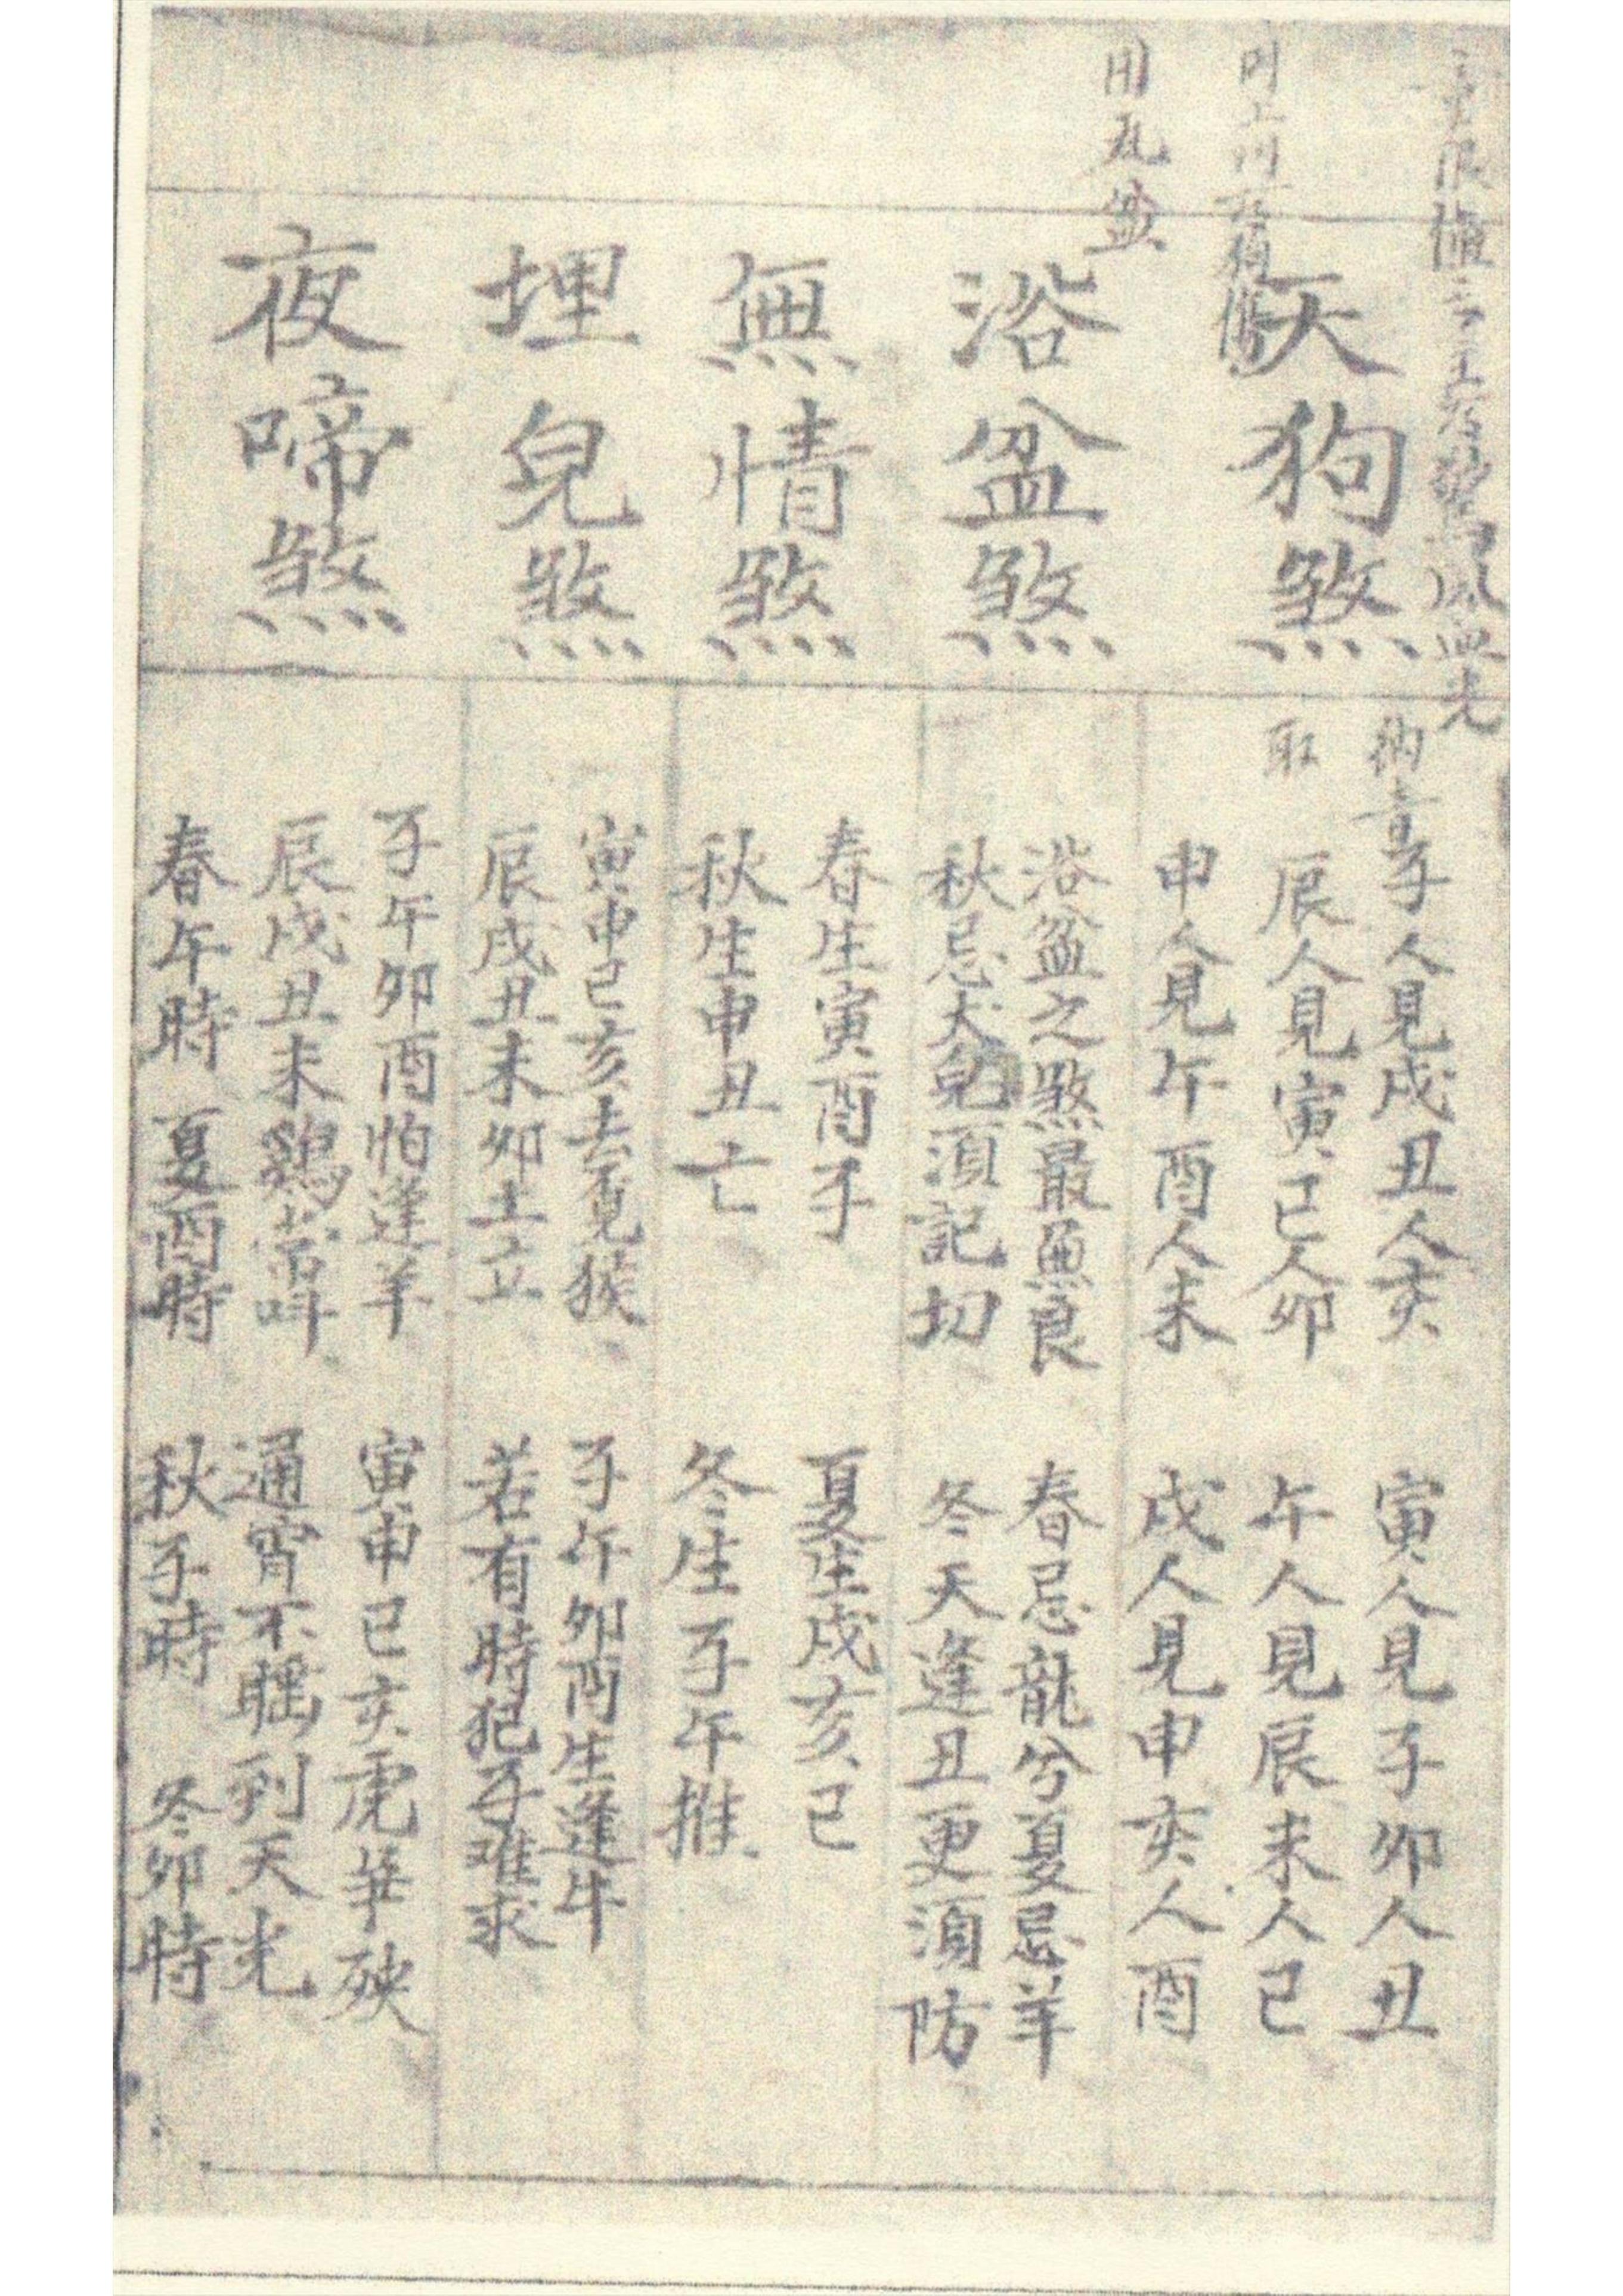 天狗煞
子人見戌丑人亥
寅人見子卯人丑
取
辰人見寅巳人卯
午人見辰未人巳
申人見午酉人未
戌人見申亥人酉
用瓦盆
浴盆煞
浴盆之煞最無良
春忌龍兮夏忌羊
秋忌犬兒須記切
冬天逢丑更須防
無情煞
春生寅酉子
夏生戌亥巳
秋生申丑亡
冬生子午推
埋兒煞
寅申巳亥去覓猴
子午卯酉生逢牛
辰戌丑未卯土立
若有時犯子难求
夜啼煞
子午卯酉怕逢羊
寅申巳亥虎華殃
辰戌丑未鷄當叫
通宵不眠到天光
春午時 夏酉時
秋子時 冬卯時